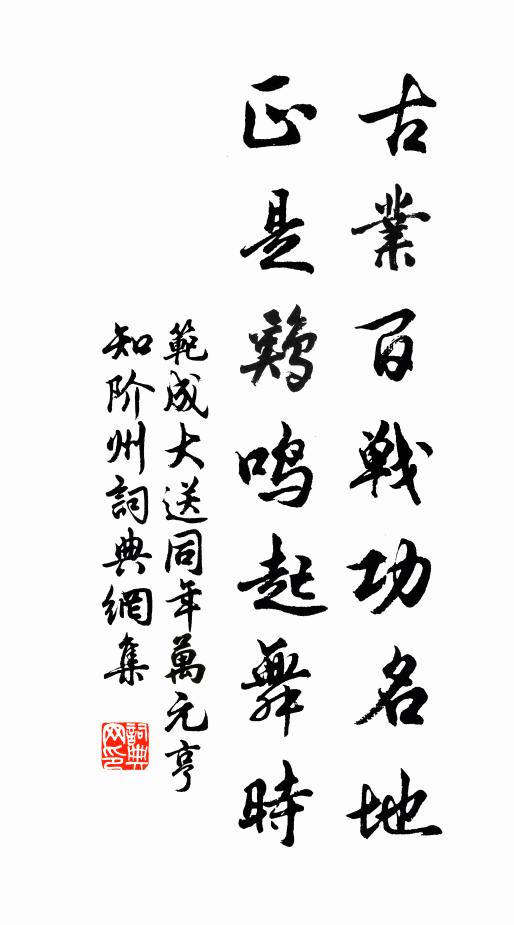 古業百戰功名地
正是鷄鳴起舞時
範成大送同年萬元亨
知阶州詞典網集
詞典网印